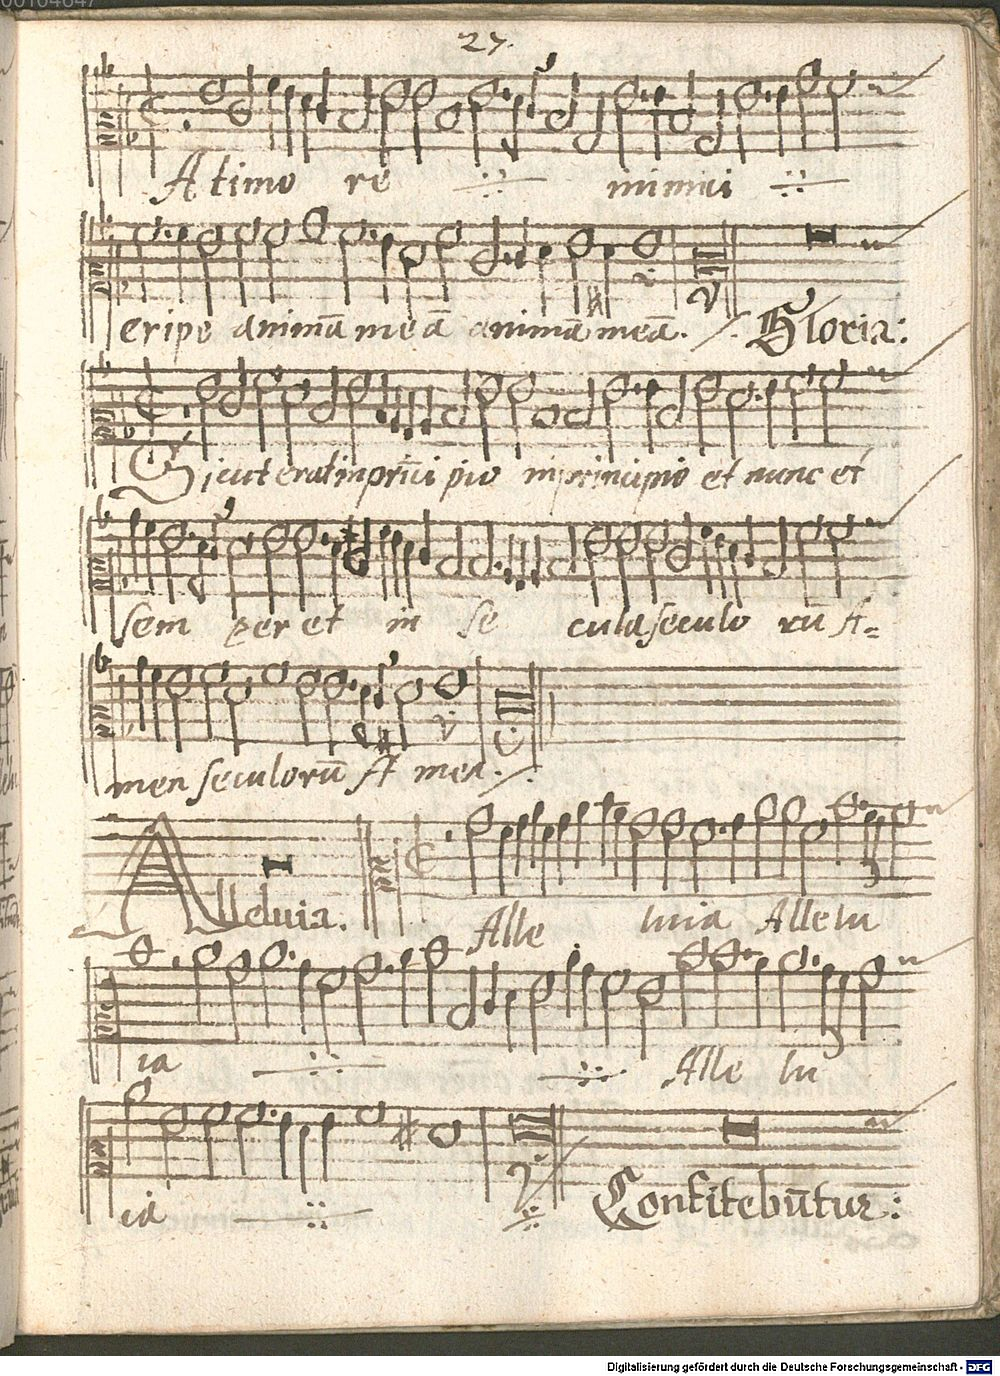 27.
A timo re inimici
eripe animā meā animā meā. Gloria:
Sicut erat in prīci pio in principio et nunc et
sem per et in se cula seculo rū A=
men seculorū A men.
Alleluia. Alle luia Allelu
ia Alle lu
ia Confitebūtur:
Digitalisierung gefördert durch die Deutsche Forschungsgemeinschaft - DFG